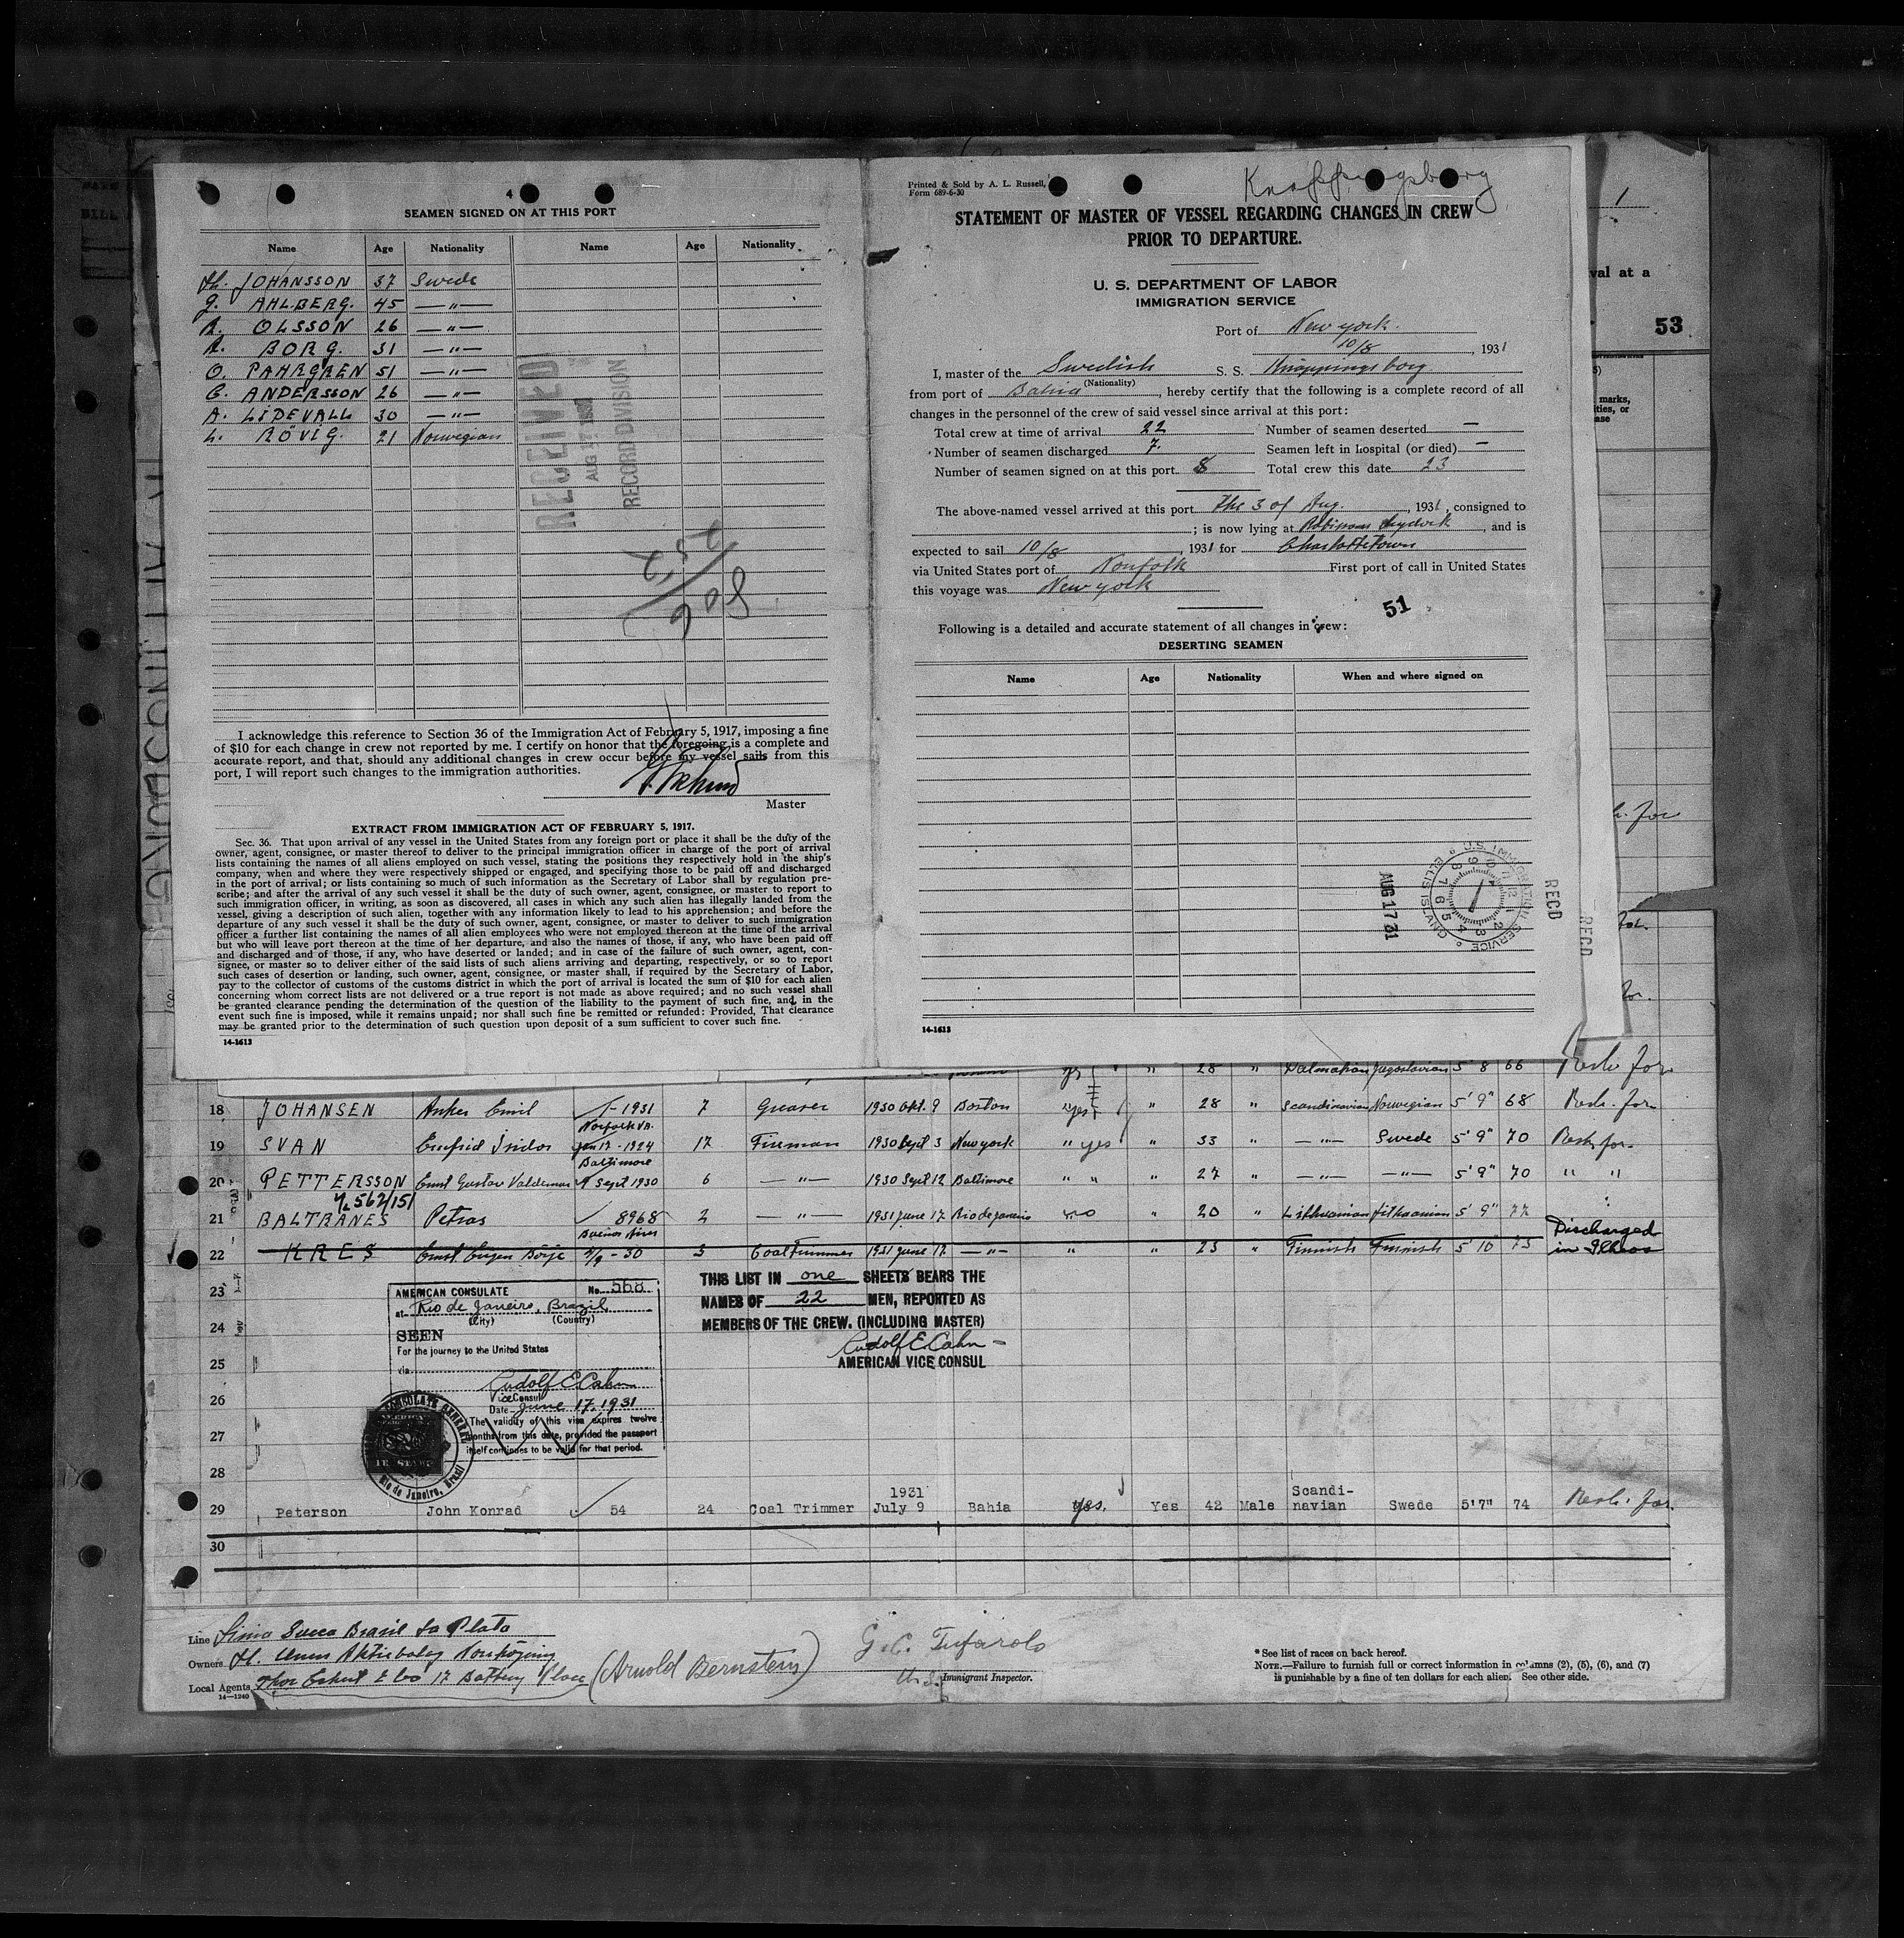 4
SEAMEN SIGNED ON AT THIS PORT
Name Age Nationality Name Age Nationality
JOHANSSON 37 Swede
G. AHLBERG. 45 —"—
A. OLSSON 26 —"—
A. BORG. 31 —"—
O. PAHRGREN 51 —"—
G. ANDERSSON 26 —"—
A. LIDEVALL 30 —"—
L. RÖVIG. 21 Norwegian
RECEIVED
AUG 27 1931
RECORD DIVISION
I acknowledge this reference to Section 36 of the Immigration Act of February 5, 1917, imposing a fine
of $10 for each change in crew not reported by me. I certify on honor that the foregoing is a complete and
accurate report, and that, should any additional changes in crew occur before my vessel sails from this
port, I will report such changes to the immigration authorities.
Master
EXTRACT FROM IMMIGRATION ACT OF FEBRUARY 5, 1917.
Sec. 36. That upon arrival of any vessel in the United States from any foreign port or place it shall be the duty of the
owner, agent, consignee, or master thereof to deliver to the principal immigration officer in charge of the port of arrival
lists containing the names of all aliens employed on such vessel, stating the positions they respectively hold in the ship's
company, when and where they were respectively shipped or engaged, and specifying those to be paid off and discharged
in the port of arrival; or lists containing so much of such information as the Secretary of Labor shall by regulation pre-
scribe; and after the arrival of any such vessel it shall be the duty of such owner, agent, consignee, or master to report to
such immigration officer, in writing, as soon as discovered, all cases in which any such alien has illegally landed from the
vessel, giving a description of such alien, together with any information likely to lead to his apprehension; and before the
departure of any such vessel it shall be the duty of such owner, agent, consignee, or master to deliver to such immigration
officer a further list containing the names of all alien employees who were not employed thereon at the time of the arrival
but who will leave port thereon at the time of her departure, and also the names of those, if any, who have been paid off
and discharged and of those, if any, who have deserted or landed; and in case of the failure of such owner, agent, con-
signee, or master so to deliver either of the said lists of such aliens arriving and departing, respectively, or so to report
such cases of desertion or landing, such owner, agent, consignee, or master shall, if required by the Secretary of Labor,
pay to the collector of customs of the customs district in which the port of arrival is located the sum of $10 for each alien
concerning whom correct lists are not delivered or a true report is not made as above required; and no such vessel shall
be granted clearance pending the determination of the question of the liability to the payment of such fine, and, in the
event such fine is imposed, while it remains unpaid; nor shall such fine be remitted or refunded: Provided, That clearance
may be granted prior to the determination of such question upon deposit of a sum sufficient to cover such fine.
14-1613
Printed & Sold by A. L. Russell,
Form 689-6-30
STATEMENT OF MASTER OF VESSEL REGARDING CHANGES IN CREW
PRIOR TO DEPARTURE.
U. S. DEPARTMENT OF LABOR
IMMIGRATION SERVICE
Port of New york.
10/8, 1931
I, master of the Swedish S. S. Knäppingsborg
(Nationality)
from port of Bahia, hereby certify that the following is a complete record of all
changes in the personnel of the crew of said vessel since arrival at this port:
Total crew at time of arrival 22 Number of seamen deserted —
Number of seamen discharged 7. Seamen left in hospital (or died) —
Number of seamen signed on at this port 8 Total crew this date 23
The above-named vessel arrived at this port the 3 of Aug., 1931, consigned to
; is now lying at Robinson drydock, and is
expected to sail 10/8, 1931 for Charlottetown
via United States port of Norfolk First port of call in United States
this voyage was New york
51
Following is a detailed and accurate statement of all changes in crew:
DESERTING SEAMEN
Name Age Nationality When and where signed on
U.S. IMMIGRATION SERVICE
ELLIS ISLAND
AUG 17 31
RECD
RECD
14-1613
1
val at a
53
marks,
yes " 28 " Dalmatian Jugoslavian 5' 8 66
18 JOHANSEN Anker Emil 1931 7 Greaser 1930 Okt. 9 Boston "yes " 28 " Scandinavian Norwegian 5' 9" 68
Norfolk Va.
19 SVAN Isidor Jan 17 - 1924 17 Fireman 1930 Sept 3 New york " yes " 33 " —"— Swede 5' 9" 70
Baltimore
20 PETTERSSON Ernst Gustav Valdemar 9 Sept 1930 6 —"— 1930 Sept 12 Baltimore " " " 27 " —"— —"— 5' 9" 70 " "
562/151
21 BALTRANES Petras 8968 2 —"— 1931 june 17 Rio de Janeiro no " 20 " Lithuanian Lithuanian 5' 9" 77
Buenos Aires
22 KRES Ernst Eugen Börje 2/9 - 30 3 Coal Trimmer 1931 june 17 —"— " " 23 " Finnish Finnish 5' 10" 73 Discharged in Ilheos
23
24
25
26
27
28
AMERICAN CONSULATE No. 568
at Rio de Janeiro, Brazil,
(City) (Country)
SEEN
For the journey to the United States
via
Rudolf E. Cahn
Vice Consul
Date June 17, 1931
The validity of this visa expires twelve
months from this date, provided the passport
itself continues to be valid for that period.
Rio de Janeiro, Brazil
THIS LIST IN one SHEETS BEARS THE
NAMES OF 22 MEN, REPORTED AS
MEMBERS OF THE CREW. (INCLUDING MASTER)
Rudolf E. Cahn
AMERICAN VICE CONSUL
29 Peterson John Konrad 54 24 Coal Trimmer 1931 July 9 Bahia yes. Yes 42 Male Scandi-navian Swede 5'7" 74
30
Line Linea Sueca Brasil La Plata
Owners
Local Agents Thor Eckert & Co 17 Battery Place (Arnold Bernstein)
14-1240
G. C. Tufarolo
Immigrant Inspector.
* See list of races on back hereof.
NOTE.—Failure to furnish full or correct information in columns (2), (5), (6), and (7)
is punishable by a fine of ten dollars for each alien. See other side.